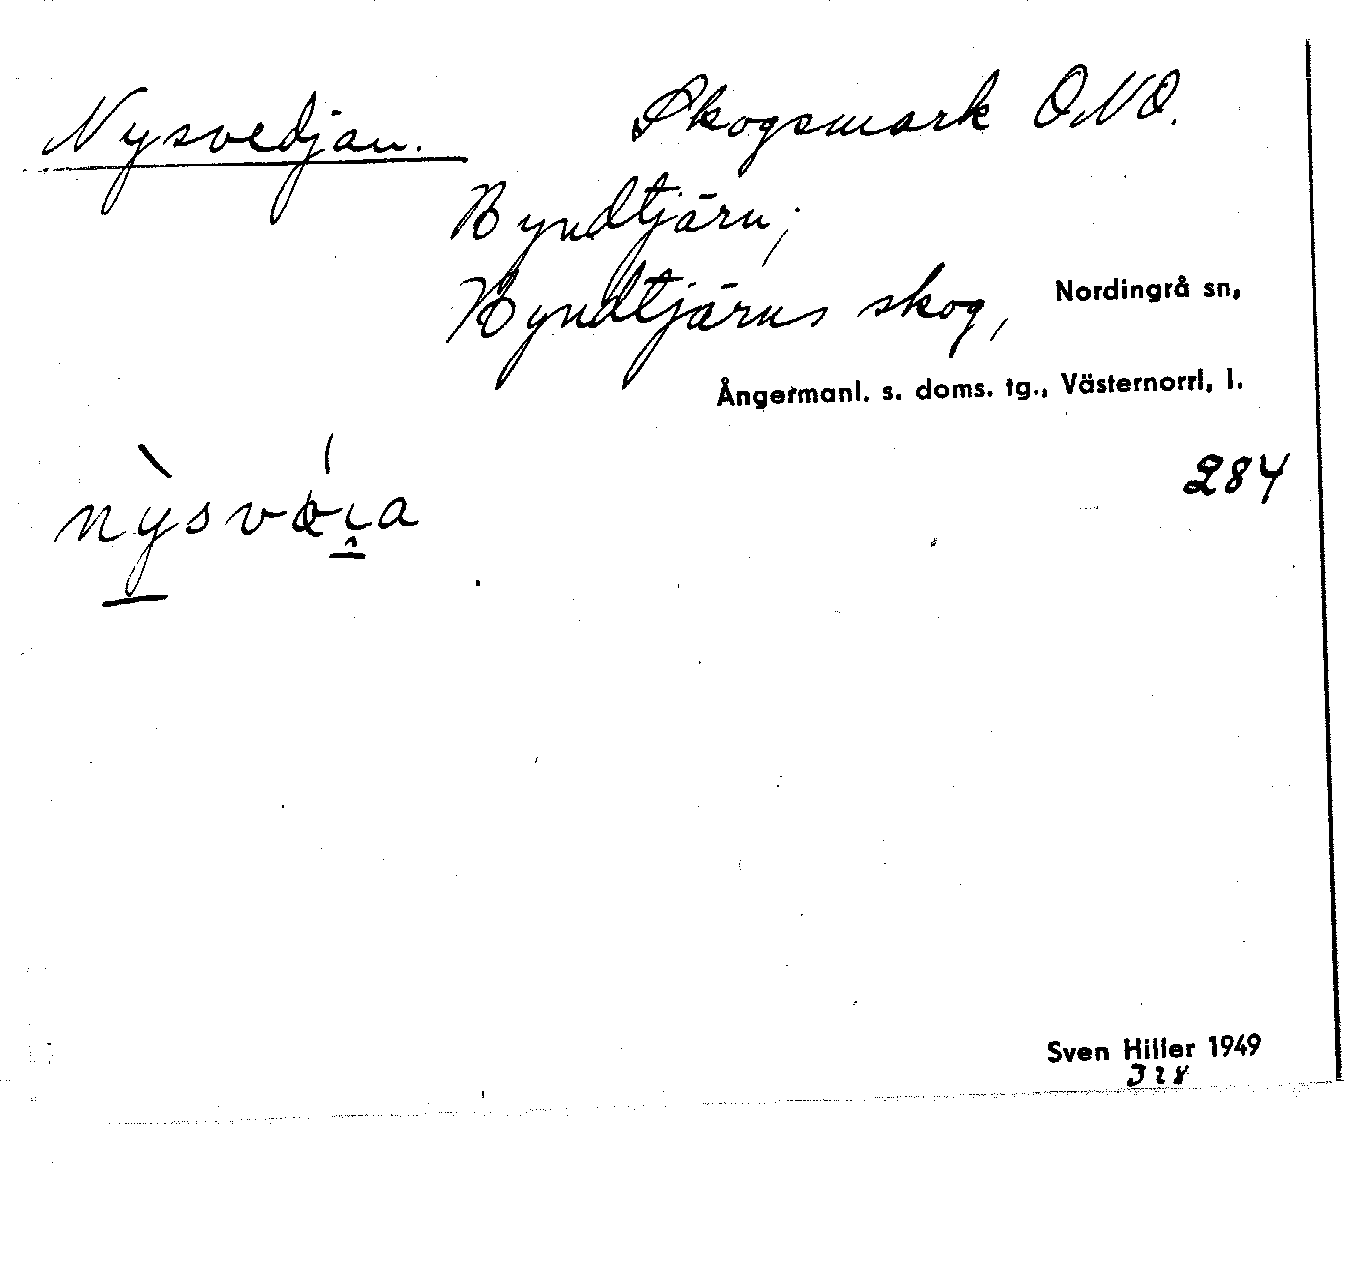 Nysvedjan. Skogsmark ONO.
Byndtjärn;
Byndtjärns skog, Nordingrå sn,
Ångermanl. s. doms. tg., Västernorrl. l.
284
Sven Hiller 1949
328